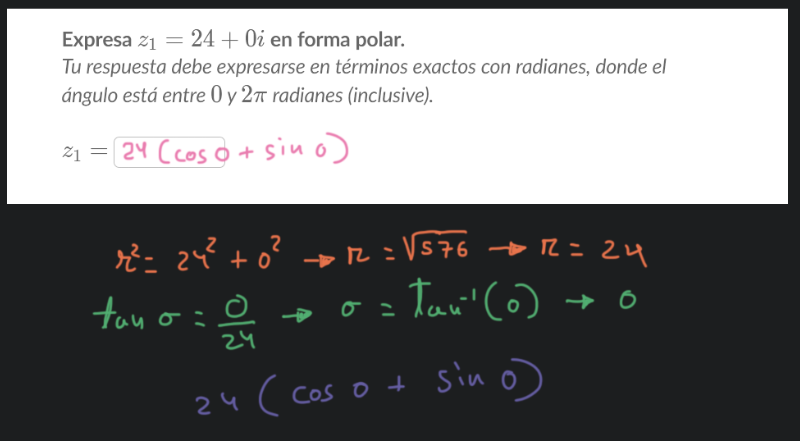 Expresa z₁ = 24 + 0i en forma polar.
Tu respuesta debe expresarse en términos exactos con radianes, donde el
ángulo está entre 0 y 2π radianes (inclusive).
z₁ = 24 (cos 0 + sin 0)
r² = 24² + 0² → r = √576 → r = 24
tan σ = 0/24 → σ = tan⁻¹(0) → 0
24 (cos 0 + sin 0)